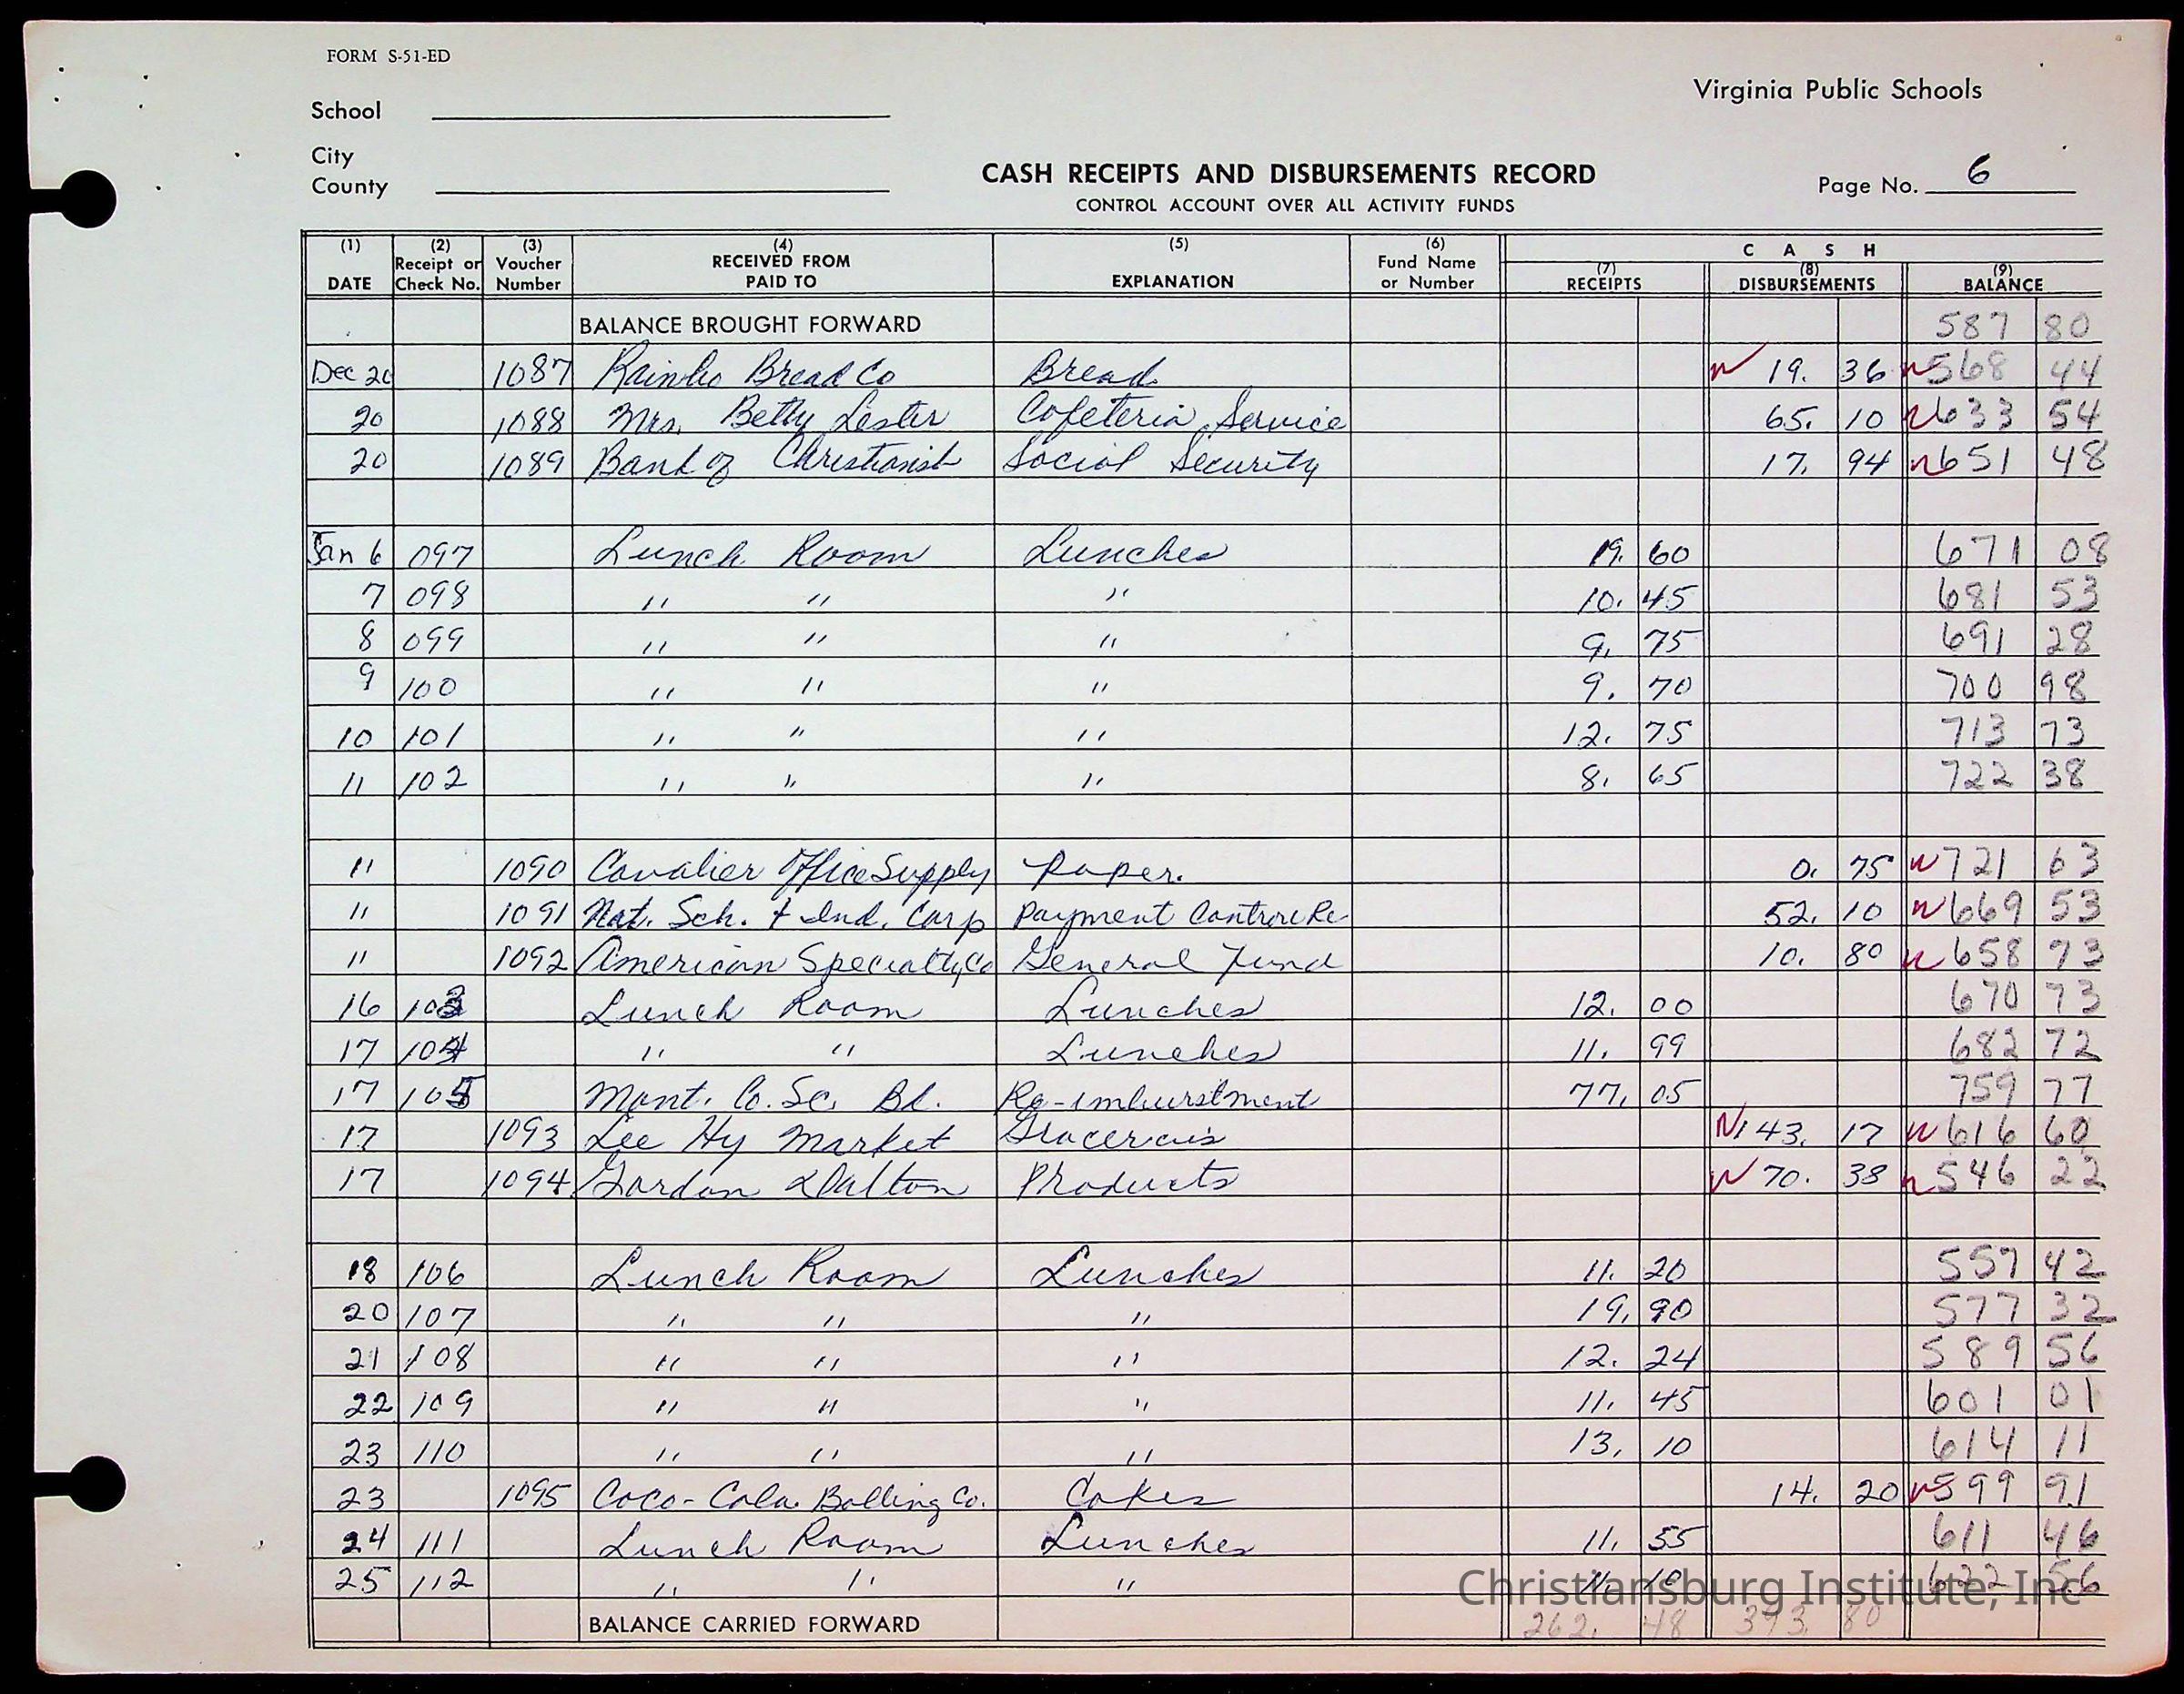 FORM S-51-ED
Virginia Public Schools
School
City
County
CASH RECEIPTS AND DISBURSEMENTS RECORD
CONTROL ACCOUNT OVER ALL ACTIVITY FUNDS
Page No. 6
(1) DATE (2) Receipt or Check No. (3) Voucher Number (4) RECEIVED FROM PAID TO (5) EXPLANATION (6) Fund Name or Number CASH (7) RECEIPTS (8) DISBURSEMENTS (9) BALANCE
BALANCE BROUGHT FORWARD 587 80
Dec 20 1087 Rainbo Bread Co Bread 19. 36 568 44
20 1088 Mrs. Betty Lester Cafeteria Service 65. 10 633 54
20 1089 Bank of Social Security 17. 94 651 48
Jan 6 097 Lunch Room Lunches 19. 60 671 08
7 098 " " " 10. 45 681 53
8 099 " " " 9. 75 691 28
9 100 " " " 9. 70 700 98
10 101 " " " 12. 75 713 73
11 102 " " " 8. 65 722 38
" 1090 Cavalier Office Supply Paper. 0. 75 721 63
" 1091 Nat. Sch. + Ind. Corp Payment 52. 10 669 53
" 1092 American Specialty Co General Fund 10. 80 658 73
16 103 Lunch Room Lunches 12. 00 670 73
17 104 " " Lunches 11. 99 682 72
17 105 Mont. Co. Sc. Bd. Re-imburstment 77. 05 759 77
17 1093 Lee Hy Market 143. 17 616 60
17 1094 Gordon & Dalton Products 70. 38 546 22
18 106 Lunch Room Lunches 11. 20 557 42
20 107 " " " 19. 90 577 32
21 108 " " " 12. 24 589 56
22 109 " " " 11. 45 601 01
23 110 " " " 13. 10 614 11
23 1095 Coco-Cola Bolling Co. Cokes 14. 20 599 91
24 111 Lunch Room Lunches 11. 55 611 46
25 112 " " " 11. 10 622 56
Christiansburg Institute, Inc
BALANCE CARRIED FORWARD 262. 48 393. 80